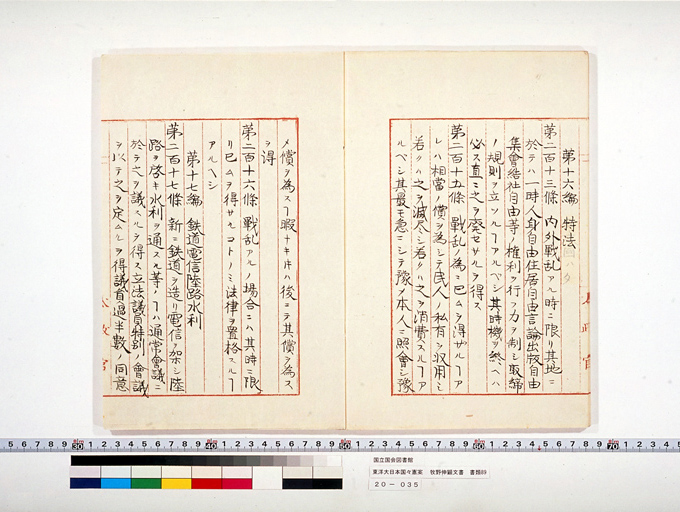 第十六編 特法
第二百十三條 内外戰乱アル時ニ限リ其地ニ
於テハ一時人身自由住居自由言論出版自由
集會結社自由等ノ権利ヲ行フ力ヲ制シ取締
ノ規則ヲ立ツルヿアルベシ其時機ヲ終ヘハ
必ス直ニ之ヲ廃セサルヲ得ス
第二百十五條 戰乱ノ為ニ已ムヲ得ザルヿア
レハ相當ノ償ヲ為シテ民人ノ私有ヲ収用シ
若クハ之ヲ滅尽シ若クハ之ヲ消費スルヿア
ルベシ其最モ急ニシテ豫メ本人ニ照會シ豫
メ償ヲ為スヿ暇ナキ片ハ後ニテ其償ヲ為ス
ヲ得
第二百十六條 戰乱アルノ場合ニハ其時ニ限
リ已ムヲ得サルコトノミ法律ヲ置格スルヿ
アルヘシ
第十七編 鉄道電信陸路水利
第二百十七條 新ニ鉄道ヲ造リ電信ヲ架シ陸
路ヲ啓キ水利ヲ通スル等ノヿハ通常會議ニ
於テ之ヲ議スルヲ得ス立法議員特別ノ會議
ヲ以テ之ヲ定ムルヲ得議員過半数ノ同意
太政官
国立国会図書館
東洋大日本国々憲案 牧野伸顕文書 書類89
20-035